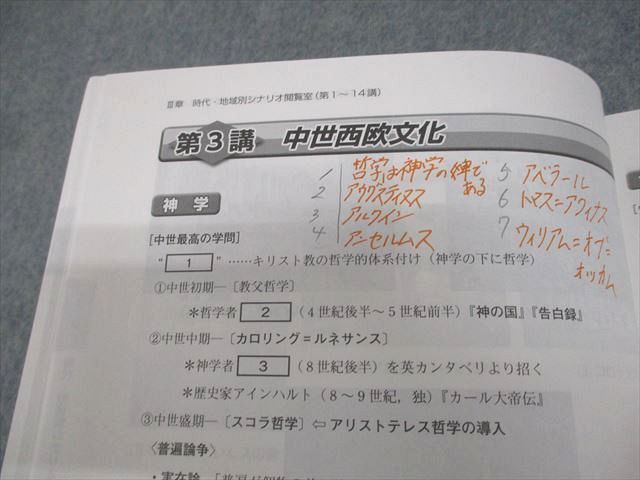 Ⅲ章 時代・地域別シナリオ閲覧室(第1~14講)
第3講 中世西欧文化
1 哲学は神学の婢で
ある
2 アウグスティヌス
3 アルクイン
4 アンセルムス
5 アベラール
6 トマス=アクィナス
7 ウィリアム=オブ=
オッカム
神学
[中世最高の学問]
" 1 "……キリスト教の哲学的体系付け(神学の下に哲学)
①中世初期―〔教父哲学〕
*哲学者 2 (4世紀後半~5世紀前半)『神の国』『告白録』
②中世中期―〔カロリング=ルネサンス〕
*神学者 3 (8世紀後半)を英カンタベリより招く
*歴史家アインハルト(8~9世紀,独)『カール大帝伝』
③中世盛期―〔スコラ哲学〕⇦アリストテレス哲学の導入
〈普遍論争〉
・実在論